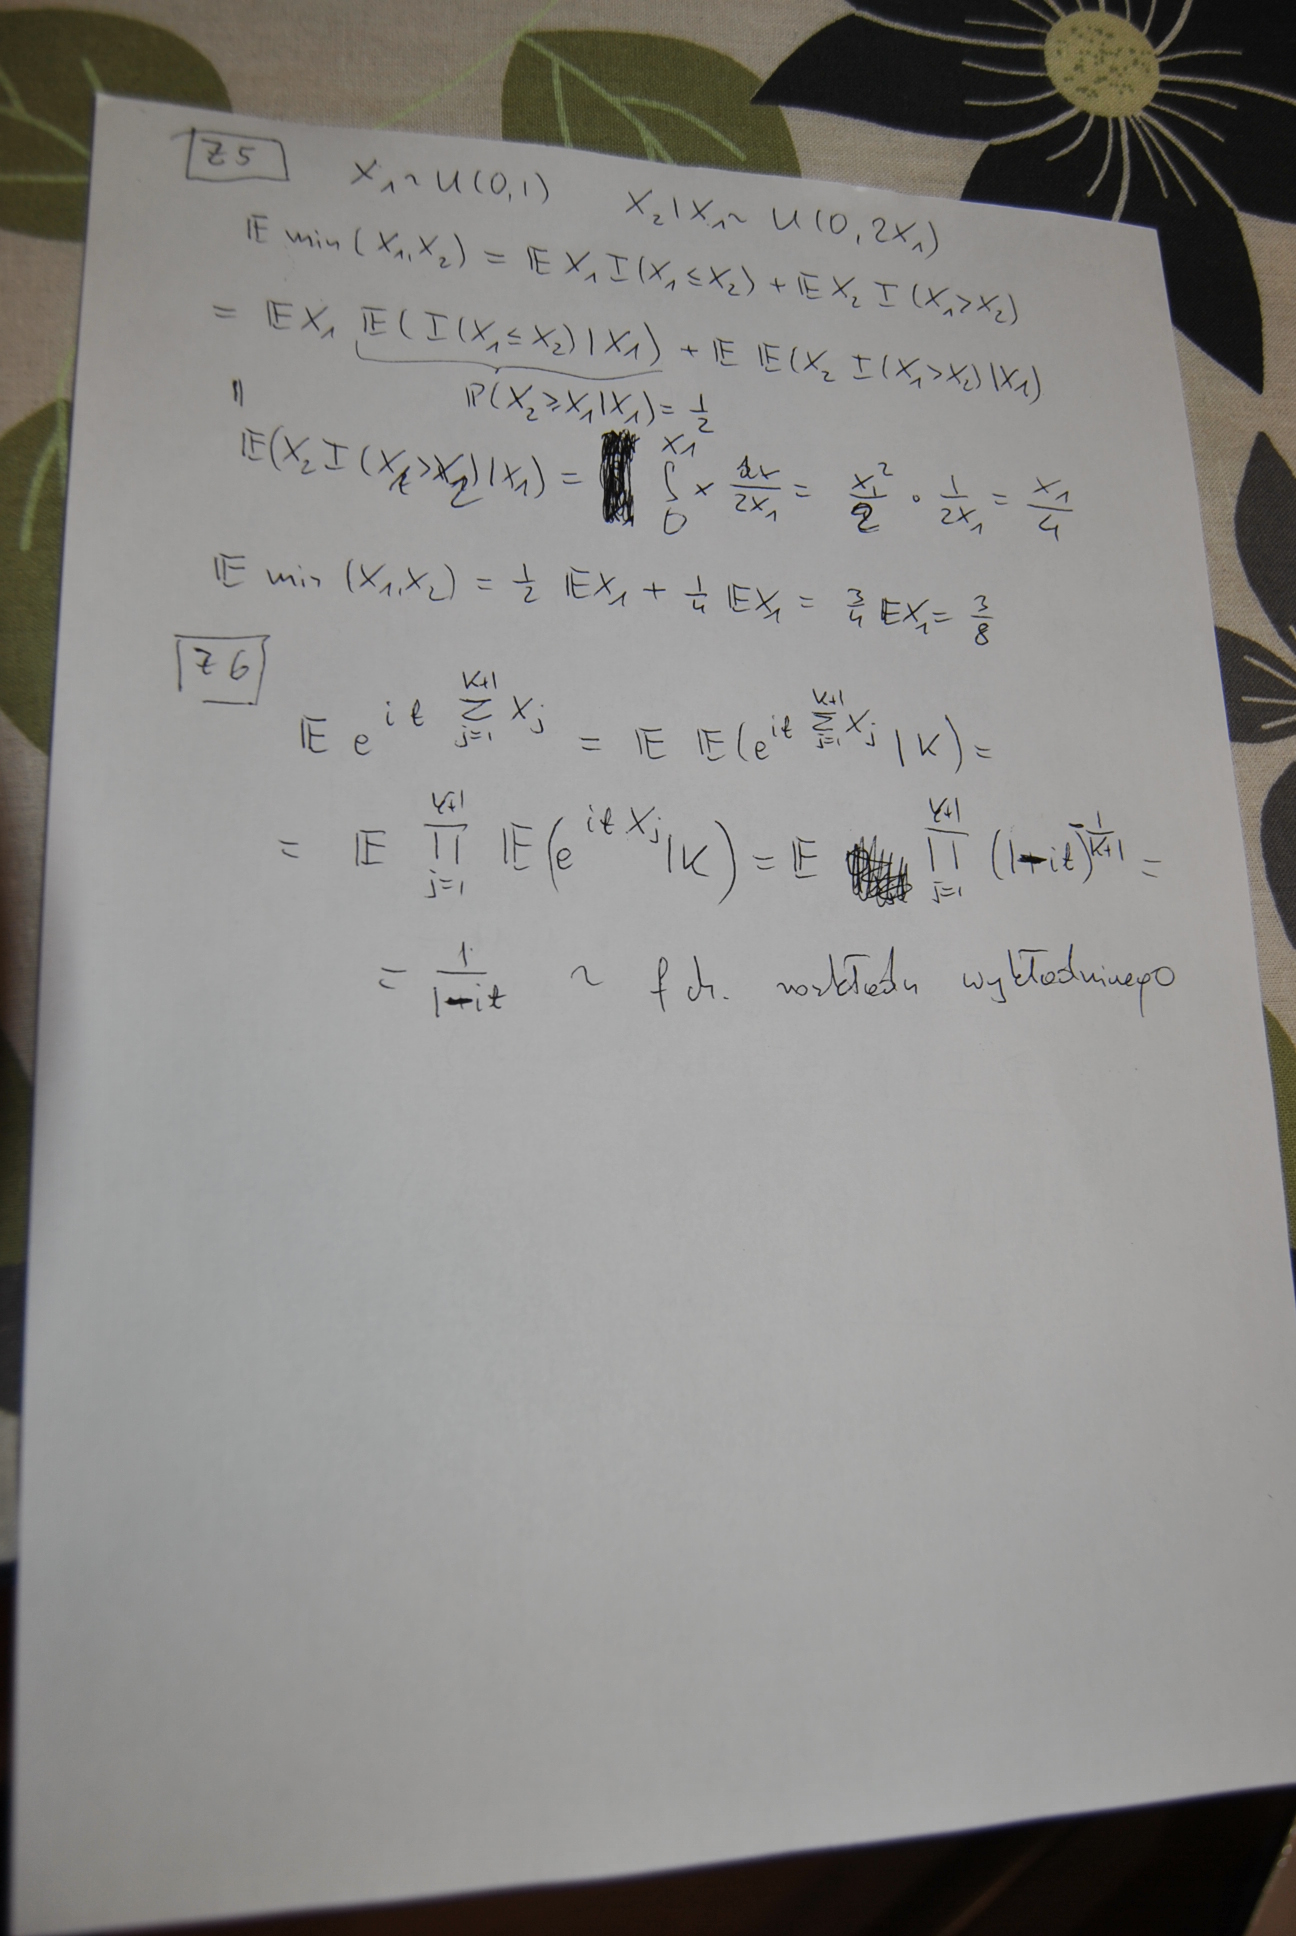 Z5 X₁ ~ U(0,1) X₂|X₁ ~ U(0, 2X₁)
𝔼 min(X₁,X₂) = 𝔼 X₁ I(X₁ ≤ X₂) + 𝔼 X₂ I(X₁ > X₂)
= 𝔼 X₁ 𝔼(I(X₁ ≤ X₂)|X₁) + 𝔼 𝔼(X₂ I(X₁ > X₂)|X₁)
" ℙ(X₂ ≥ X₁|X₁) = 1/2
𝔼(X₂ I(X₁ > X₂)|X₁) = ∫₀^{X₁} x dx/2X₁ = X₁²/2 · 1/2X₁ = X₁/4
𝔼 min(X₁,X₂) = 1/2 𝔼X₁ + 1/4 𝔼X₁ = 3/4 𝔼X₁ = 3/8
Z6
𝔼 e^{it ∑_{j=1}^{K+1} X_j} = 𝔼 𝔼(e^{it ∑_{j=1}^{K+1} X_j} | K) =
= 𝔼 ∏_{j=1}^{K+1} 𝔼(e^{it X_j}|K) = 𝔼 ∏_{j=1}^{K+1} (1-it)^{-1/(K+1)} =
= 1/(1-it) ~ f. ch. rozkładu wykładniczego